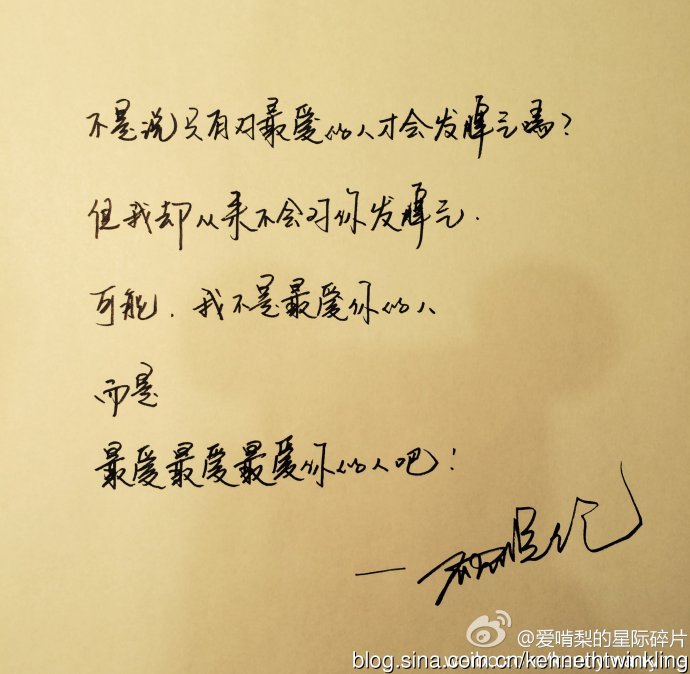 不是说只有对最爱的人才会发脾气嘛？
但我却从来不会对你发脾气.
可能.我不是最爱你的人
而是
最爱最爱最爱你的人吧！
—
@爱啃梨的星际碎片
blog.sina.com.cn/kennethtwinkling